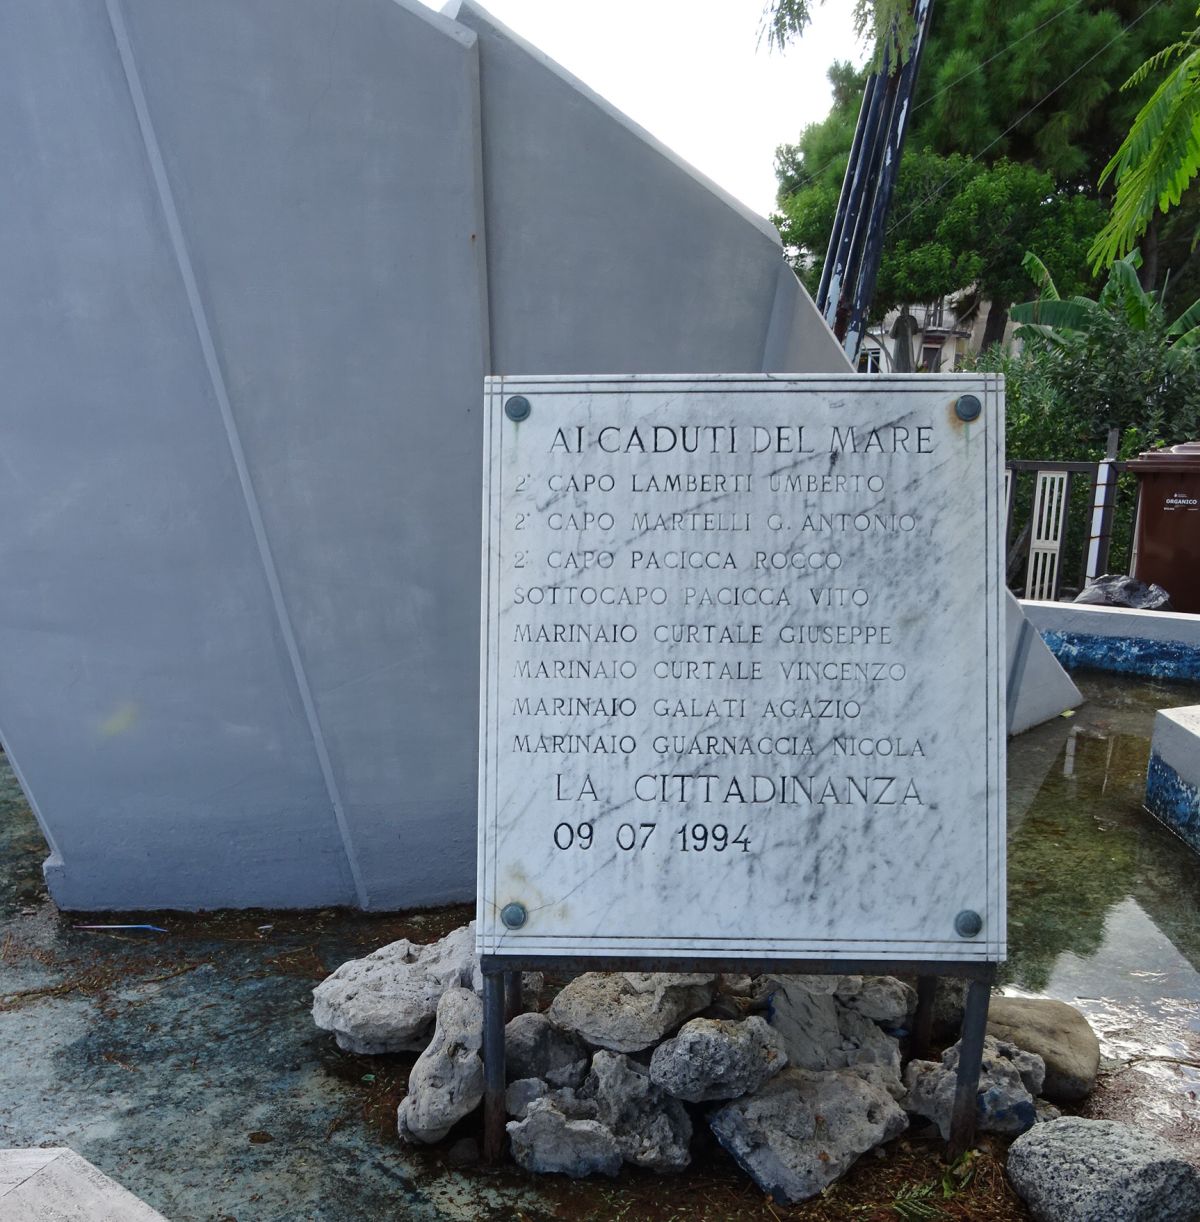 AI CADUTI DEL MARE
2° CAPO LAMBERTI UMBERTO
2° CAPO MARTELLI G. ANTONIO
2° CAPO PACICCA ROCCO
SOTTOCAPO PACICCA VITO
MARINAIO CURTALE GIUSEPPE
MARINAIO CURTALE VINCENZO
MARINAIO GALATI AGAZIO
MARINAIO GUARNACCIA NICOLA
LA CITTADINANZA
09 07 1994
ORGANICO